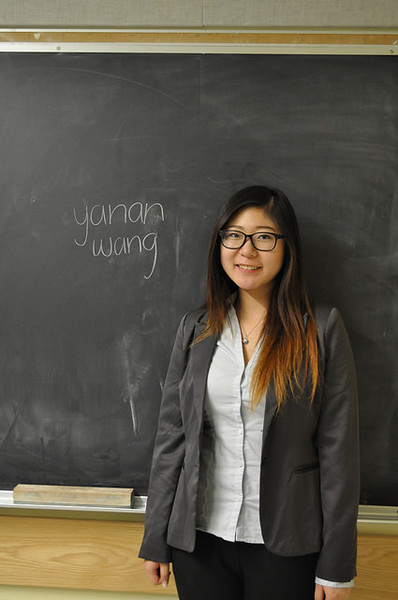 yanan
wang